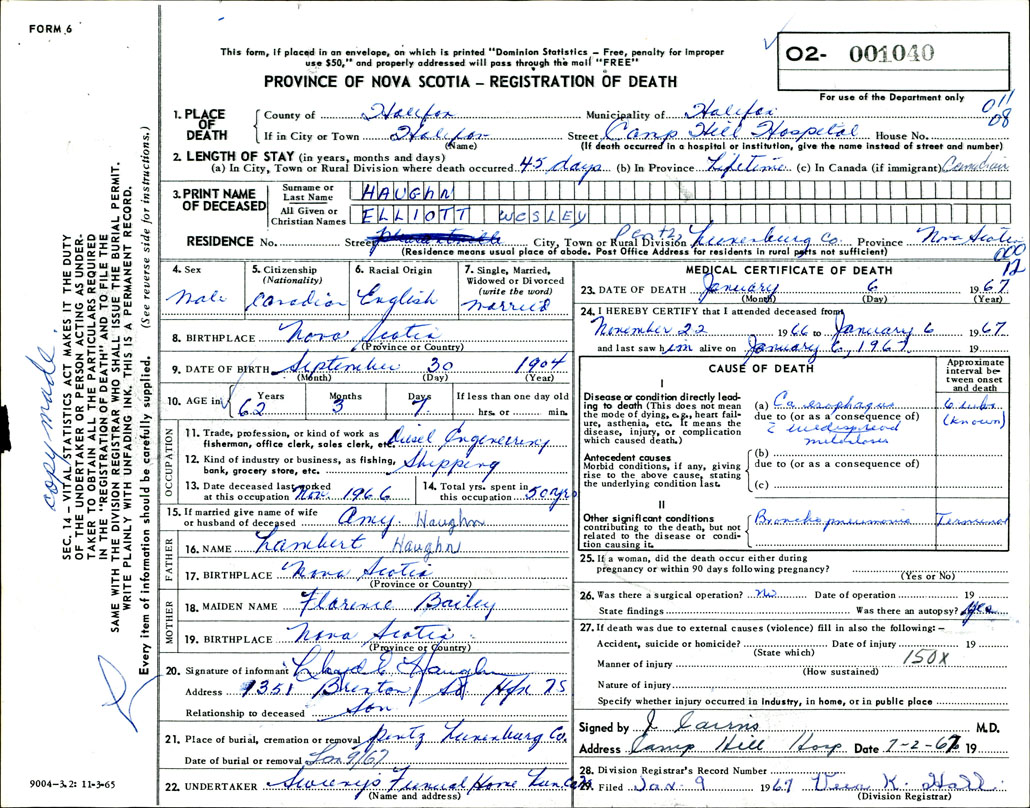 FORM 6
This form, if placed in an envelope, on which is printed "Dominion Statistics – Free, penalty for improper
use $50," and properly addressed will pass through the mail "FREE"
PROVINCE OF NOVA SCOTIA – REGISTRATION OF DEATH
02- 001040
For use of the Department only
011
08
1. PLACE OF DEATH
County of Halifax Municipality of Halifax
If in City or Town Halifax Street Camp Hill Hospital House No.
(Name) (If death occurred in a hospital or institution, give the name instead of street and number)
2. LENGTH OF STAY (in years, months and days)
(a) In City, Town or Rural Division where death occurred 45 days (b) In Province Lifetime (c) In Canada (if immigrant)
3. PRINT NAME OF DECEASED
Surname or Last Name HAUGHN
All Given or Christian Names ELLIOTT WESLEY
RESIDENCE No. Street City, Town or Rural Division Pentz, Lunenburg Co. Province Nova Scotia
(Residence means usual place of abode. Post Office Address for residents in rural parts not sufficient)
000
12
4. Sex
Male
5. Citizenship
(Nationality)
Canadian
6. Racial Origin
English
7. Single, Married,
Widowed or Divorced
(write the word)
Married
8. BIRTHPLACE Nova Scotia
(Province or Country)
9. DATE OF BIRTH September 30 1904
(Month) (Day) (Year)
10. AGE in Years Months Days If less than one day old
62 3 7 hrs. or min.
OCCUPATION
11. Trade, profession, or kind of work as
fisherman, office clerk, sales clerk, etc. Diesel Engineering
12. Kind of industry or business, as fishing,
bank, grocery store, etc. Shipping
13. Date deceased last worked
at this occupation Nov. 1966
14. Total yrs. spent in
this occupation 50 yrs
15. If married give name of wife
or husband of deceased Amy Haughn
FATHER
16. NAME Lambert Haughn
17. BIRTHPLACE Nova Scotia
(Province or Country)
MOTHER
18. MAIDEN NAME Florence Bailey
19. BIRTHPLACE Nova Scotia
(Province or Country)
20. Signature of informant Haughn
Address 1351 Brenton St Hfx NS
Relationship to deceased Son
21. Place of burial, cremation or removal Pentz Lunenburg Co.
Date of burial or removal Jan 9/67
22. UNDERTAKER Sweeny's Funeral Home
(Name and address)
MEDICAL CERTIFICATE OF DEATH
23. DATE OF DEATH January 6 1967
(Month) (Day) (Year)
24. I HEREBY CERTIFY that I attended deceased from
November 22 1966 to January 6 1967
and last saw him alive on January 6, 1967 19
CAUSE OF DEATH
Approximate
interval be-
tween onset
and death
I
Disease or condition directly lead-
ing to death (This does not
mean the mode of dying, e.g., heart fail-
ure, asthenia, etc. It means the
disease, injury, or complication
which caused death.)
(a) Ca esophagus
due to (or as a consequence of)
c widespread
metastases
(known)
Antecedent causes
Morbid conditions, if any, giving
rise to the above cause, stating
the underlying condition last.
(b)
due to (or as a consequence of)
(c)
II
Other significant conditions
contributing to the death, but not
related to the disease or condi-
tion causing it.
Broncho pneumonia Terminal
25. If a woman, did the death occur either during
pregnancy or within 90 days following pregnancy?
(Yes or No)
26. Was there a surgical operation? No Date of operation 19
State findings Was there an autopsy? Yes
27. If death was due to external causes (violence) fill in also the following: –
Accident, suicide or homicide? Date of injury 19
(State which)
150X
Manner of injury
(How sustained)
Nature of injury
Specify whether injury occurred in industry, in home, or in public place
Signed by J. Cairns M.D.
Address Camp Hill Hosp Date 7-2-67 19
28. Division Registrar's Record Number
29. Filed Jan. 9 1967 Vera K. Hall
(Division Registrar)
copy made.
SEC. 14 – VITAL STATISTICS ACT MAKES IT THE DUTY
OF THE UNDERTAKER OR PERSON ACTING AS UNDER-
TAKER TO OBTAIN ALL THE PARTICULARS REQUIRED
IN THE "REGISTRATION OF DEATH" AND TO FILE THE
SAME WITH THE DIVISION REGISTRAR WHO SHALL ISSUE THE BURIAL PERMIT.
WRITE PLAINLY WITH UNFADING INK. THIS IS A PERMANENT RECORD.
Every item of information should be carefully supplied. (See reverse side for instructions.)
9004–3.2: 11-3-65